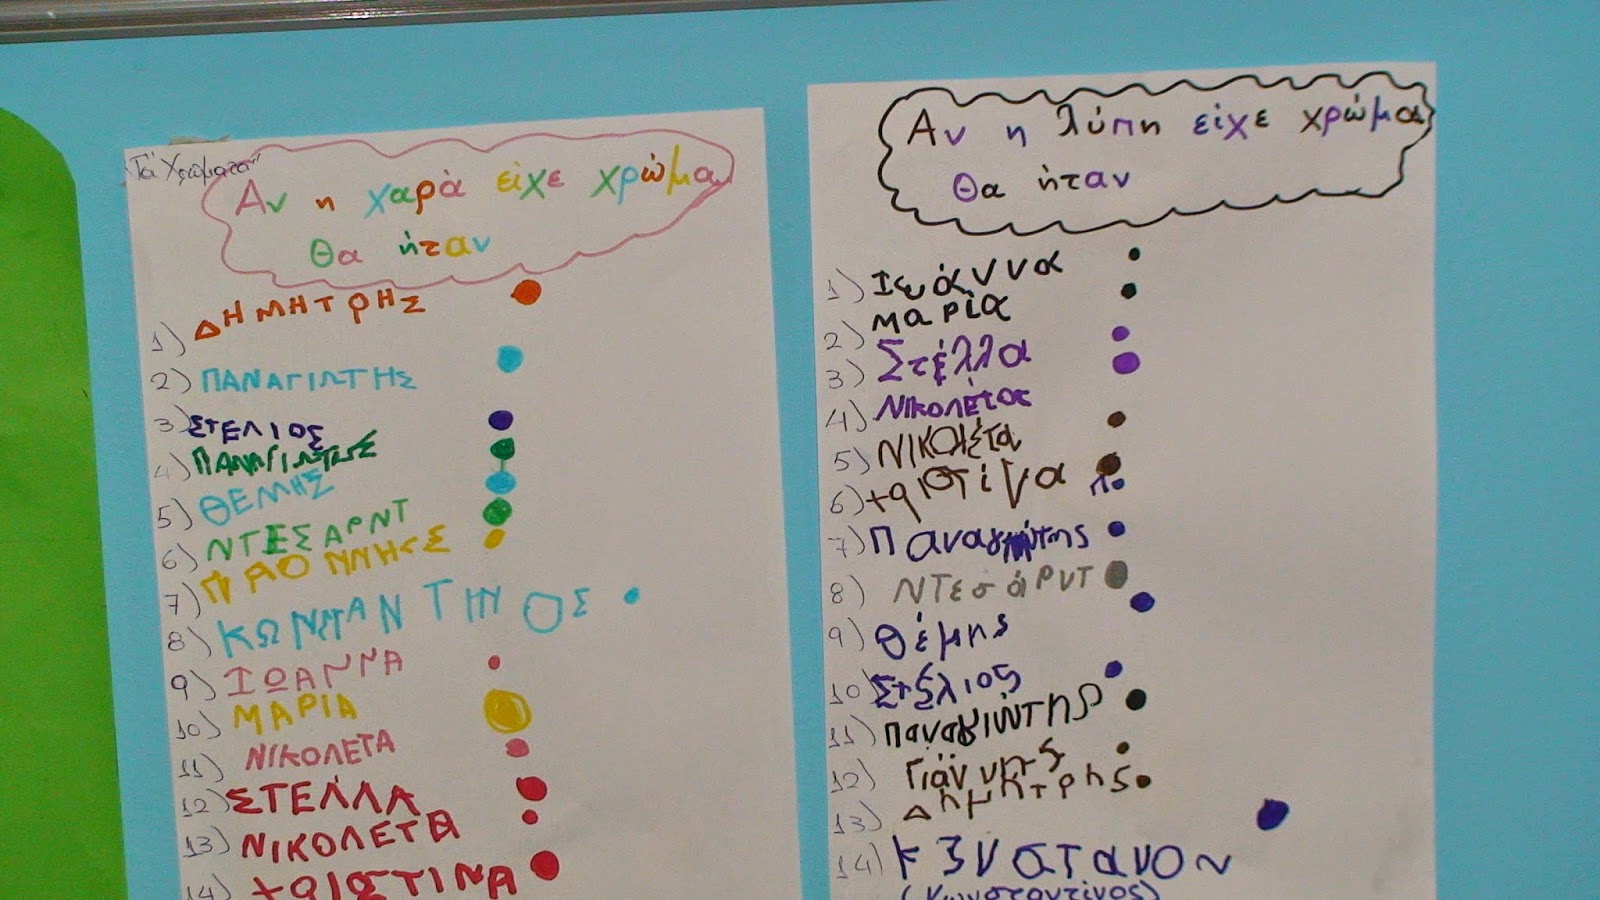 "Τα Χρώματα"
Αν η χαρά είχε χρώμα
θα ήταν
1) ΔΗΜΗΤΡΗΣ
2) ΠΑΝΑΓΙΩΤΗΣ
3) ΣΤΕΛΙΟΣ
4) ΠΑΝΑΓΙΩΤΗΣ
5) ΘΕΜΗΣ
6) ΝΤΕΣΑΡΝΤ
7)
8)
9) ΙΩΑΝΝΑ
10) ΜΑΡΙΑ
11) ΝΙΚΟΛΕΤΑ
12) ΣΤΕΛΛΑ
13) ΝΙΚΟΛΕΤΑ
14) ΧΡΙΣΤΙΝΑ
Αν η λύπη είχε χρώμα
θα ήταν
1) Ιωάννα
2) μαρία
3) Στέλλα
4) Νικολέτας
5) Νικολέτα
6) χριστίνα
7) Παναγιώτης
8) Ντεσάρντ
9) θέμης
10) Στέλιος
11) Παναγιώτης
12) Γιάννης
13) Δημήτρης
14)
(Κωνσταντίνος)